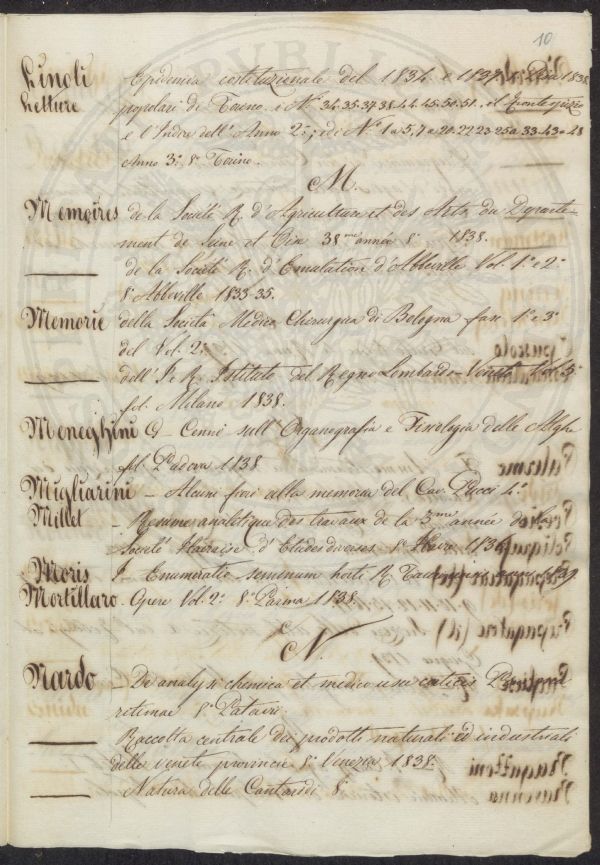 10
Linoli Epidemia costituzionale del 1834 e 1837 8° Pisa 1838
Letture popolari di Torino. i Ni 34.35.37.38.44.45.50.51. el Frontespizio
e l'Indice dell'Anno 2°; ed i Ni 1 a 5, 7 a 20.22.23.25 a 33.43 a 48
Anno 3° 8° Torino.
M.
Memoires de la Société R. d'Agriculture et des Arts du Departe-
ment de Seine et Oise 38me année 8° 1838.
— de la Société R. d'Emulation d'Abbeville Vol. 1° e 2°
8° Abbeville 1833-35.
Memorie della Società Medico Chirurgica di Bologna fasc. 1° e 3°
del Vol. 2°
— dell'I. e R. Istituto del Regno Lombardo-Veneto Vol. 5°
fol. Milano 1838.
Meneghini G — Cenni sull'Organografia e Fisiologia delle Alghe
fol. Padova 1838
Migliarini — Alcuni fiori alla memoria del Cav. Pucci 4°
Millet — Resume analitique des travaux de la 3me année de la
Société Havraise d'Etudes diverses 8° Havre
Moris J — Enumeratio seminum horti R. 1839.
Mortillaro. Opere Vol. 2° 8° Parma 1838
N.
Nardo — De analysi chemica et medico usu
8° Patavii
— Raccolta centrale dei prodotti naturali ed industriali
delle venete provincie 8° Venezia 1838.
— Natura delle Cantaridi 8°